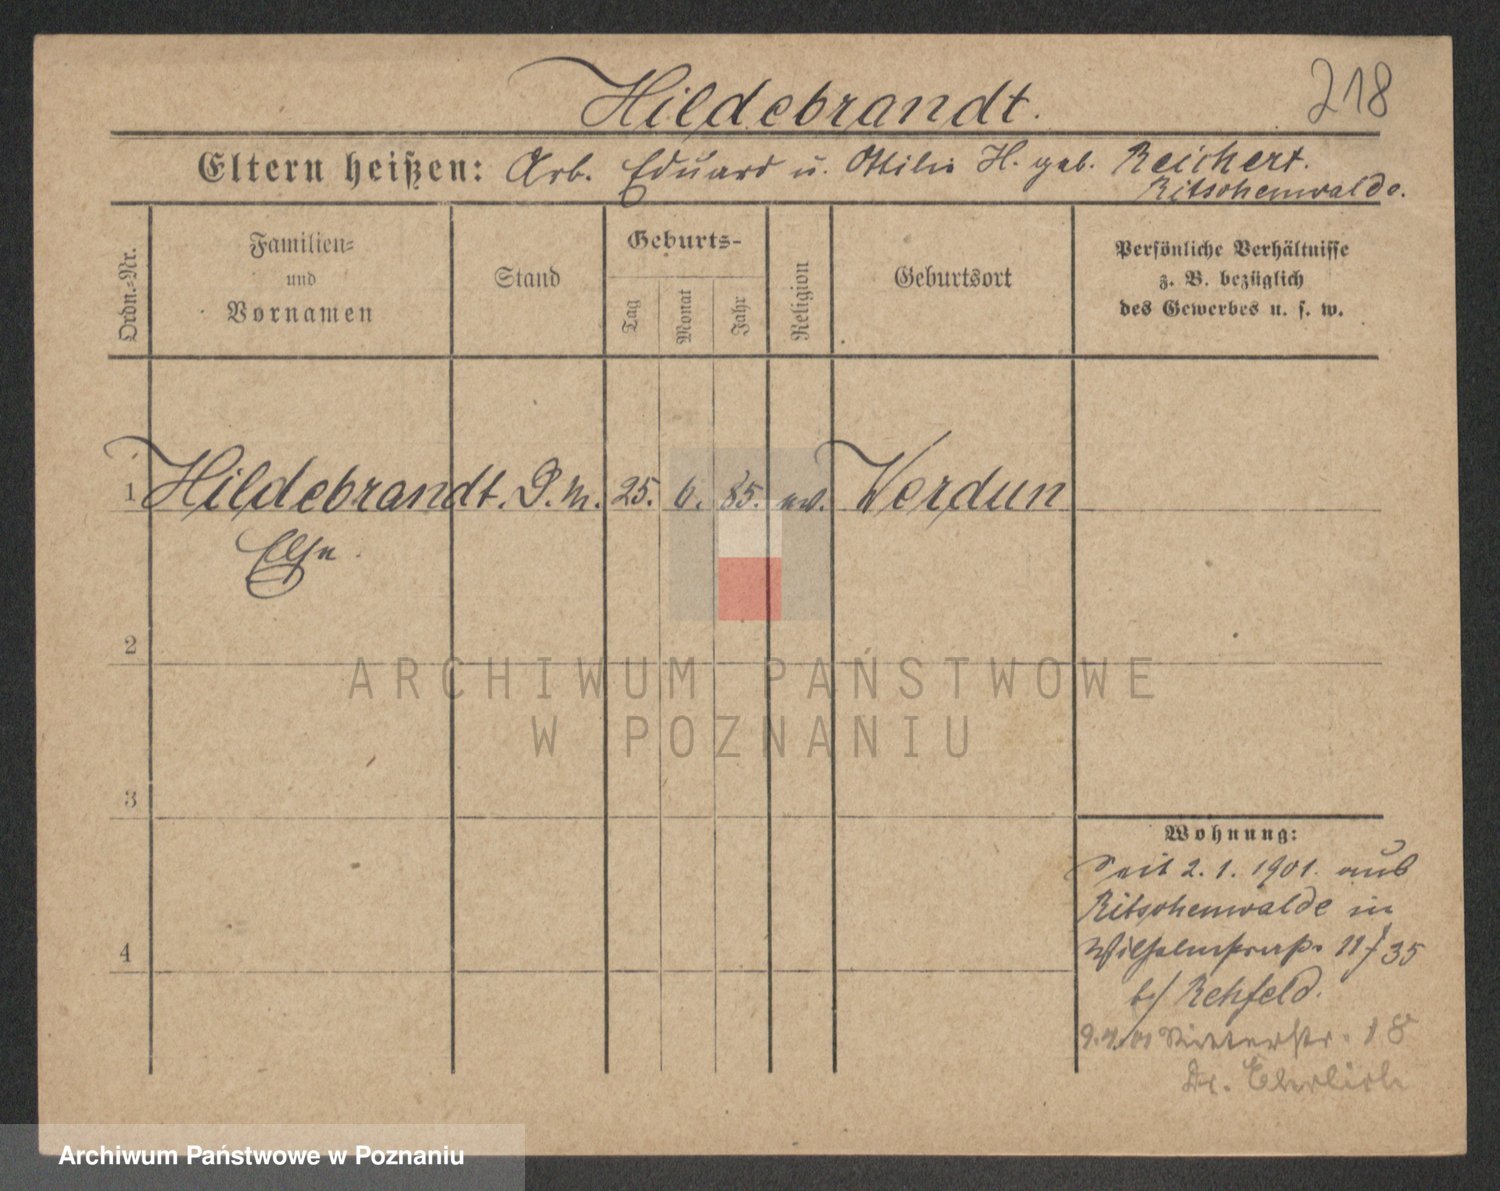 218
Hildebrandt.
Eltern heißen: Arb. Eduard u. Ottilie H. geb. Reichert.
Ritschenwalde.
Ordn.-Nr.
Familien-
und
Vornamen
Stand
Geburts-
Tag
Monat
Jahr
Religion
Geburtsort
Persönliche Verhältnisse
z. B. bezüglich
des Gewerbes u. s. w.
1 Hildebrandt. D. M. 25. 6. 85. ev. Werdun
Else.
2
ARCHIWUM PAŃSTWOWE
W POZNANIU
3
Wohnung:
Seit 2. 1. 1901. aus
Ritschenwalde in
4
Wilhelmstraße 11 / 35
b/ Rehfeld.
9.4.01 Ritterstr. 18
Dr. Ehrlich
Archiwum Państwowe w Poznaniu